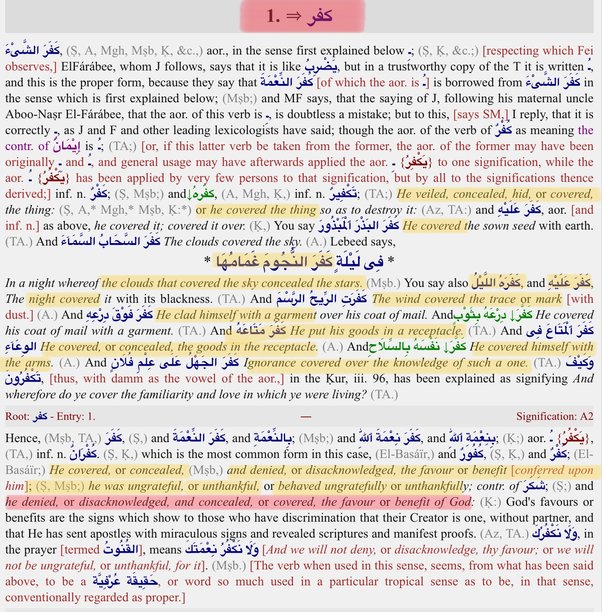 1. ⇒ كفر
كَفَرَ الشَّىْءَ, (Ṣ, A, Mgh, Mṣb, Ḳ, &c.,) aor., in the sense first explained below ـِ; (Ṣ, Ḳ, &c.;) [respecting which Fei
observes,] ElFárábee, whom J follows, says that it is like يَضْرِبُ, but in a trustworthy copy of the T it is written ـُ,
and this is the proper form, because they say that كَفَرَ النِّعْمَةَ [of which the aor. is ـُ] is borrowed from كَفَرَ الشَّىْءَ in
the sense which is first explained below; (Mṣb;) and MF says, that the saying of J, following his maternal uncle
Aboo-Naṣr El-Fárábee, that the aor. of this verb is ـِ, is doubtless a mistake; but to this, [says SM,] I reply, that it is
correctly ـِ, as J and F and other leading lexicologists have said; though the aor. of the verb of كُفْر as meaning the
contr. of إِيمَان is ـُ; (TA;) [or, if this latter verb be taken from the former, the aor. of the former may have been
originally ـِ and ـُ, and general usage may have afterwards applied the aor. ـِ {يَكْفِرُ} to one signification, while the
aor. ـُ {يَكْفُرُ} has been applied by very few persons to that signification, but by all to the significations thence
derived;] inf. n. كَفْرٌ; (Ṣ, Mṣb;) and ↓ كفّرهُ, (A, Mgh, Ḳ,) inf. n. تَكْفِيرٌ; (TA;) He veiled, concealed, hid, or covered,
the thing: (Ṣ, A,* Mgh,* Mṣb, Ḳ:*) or he covered the thing so as to destroy it: (Az, TA:) and كَفَرَ عَلَيْهِ, aor. [and
inf. n.] as above, he covered it; covered it over. (Ḳ,) You say كَفَرَ البَذْرَ الْمَبْذُورَ He covered the sown seed with earth.
(TA.) And كَفَرَ السَّحَابُ السَّمَآءَ The clouds covered the sky. (A.) Lebeed says,
* فِى لَيْلَةٍ كَفَرَ النُّجُومَ غَمَامُهَا *
In a night whereof the clouds that covered the sky concealed the stars. (Mṣb.) You say also كَفَرَهُ اللَّيْلُ, and كَفَرَ عَلَيْهِ,
The night covered it with its blackness. (TA.) كَفَرَتِ الرِّيحُ الرَّسْمَ The wind covered the trace or mark [with
dust.] (A.) And كَفَرَ فَوْقَ دِرْعِهِ He clad himself with a garment over his coat of mail. And ↓ كفّر دِرْعَهُ بِثَوْبٍ He covered
his coat of mail with a garment. (TA.) And كَفَرَ مَتَاعَهُ He put his goods in a receptacle. (TA.) And كَفَرَ الْمَتَاعَ فِى
الوِعَآءِ He covered, or concealed, the goods in the receptacle. (A.) And ↓ كفّر نَفْسَهُ بِالسِّلَاحِ He covered himself with
the arms. (A.) And كَفَرَ الجَهْلُ عَلَى عِلْمِ فُلَانٍ Ignorance covered over the knowledge of such a one. (TA.) وَكَيْفَ
تَكْفُرُونَ, [thus, with damm as the vowel of the aor.,] in the Ḳur, iii. 96, has been explained as signifying And
wherefore do ye cover the familiarity and love in which ye were living? (TA.)
Root: كفر - Entry: 1. — Signification: A2
Hence, (Mṣb, TA,) كَفَرَ, (Ṣ,) and كَفَرَ النِّعْمَةَ, and بِالنِّعْمَةِ, (Mṣb;) and كَفَرَ نِعْمَةَ ٱللّٰهِ, and بِنِعْمَةِ ٱللّٰهِ; (Ḳ;) aor. ـُ {يَكْفُرُ},
(TA,) inf. n. كُفْرَانٌ, (Ṣ, Ḳ,) which is the most common form in this case, (El-Basáïr,) and كُفُورٌ, (Ṣ, Ḳ,) and كُفْرٌ; (El-
Basáïr;) He covered, or concealed, (Mṣb,) and denied, or disacknowledged, the favour or benefit [conferred upon
him]; (Ṣ, Mṣb;) he was ungrateful, or unthankful, or behaved ungratefully or unthankfully; contr. of شكر; (Ṣ;) and
he denied, or disacknowledged, and concealed, or covered, the favour or benefit of God: (Ḳ:) God's favours or
benefits are the signs which show to those who have discrimination that their Creator is one, without partner, and
that He has sent apostles with miraculous signs and revealed scriptures and manifest proofs. (Az, TA.) وَلَا نَكْفُرُكَ, in
the prayer [termed القُنُوت], means وَلَا نَكْفُرُ نِعْمَتَكَ [And we will not deny, or disacknowledge, thy favour; or we will
not be ungrateful, or unthankful, for it]. (Mṣb.) [The verb when used in this sense, seems, from what has been said
above, to be a حَقِيقَة عُرْفِيَّة, or word so much used in a particular tropical sense as to be, in that sense,
conventionally regarded as proper.]